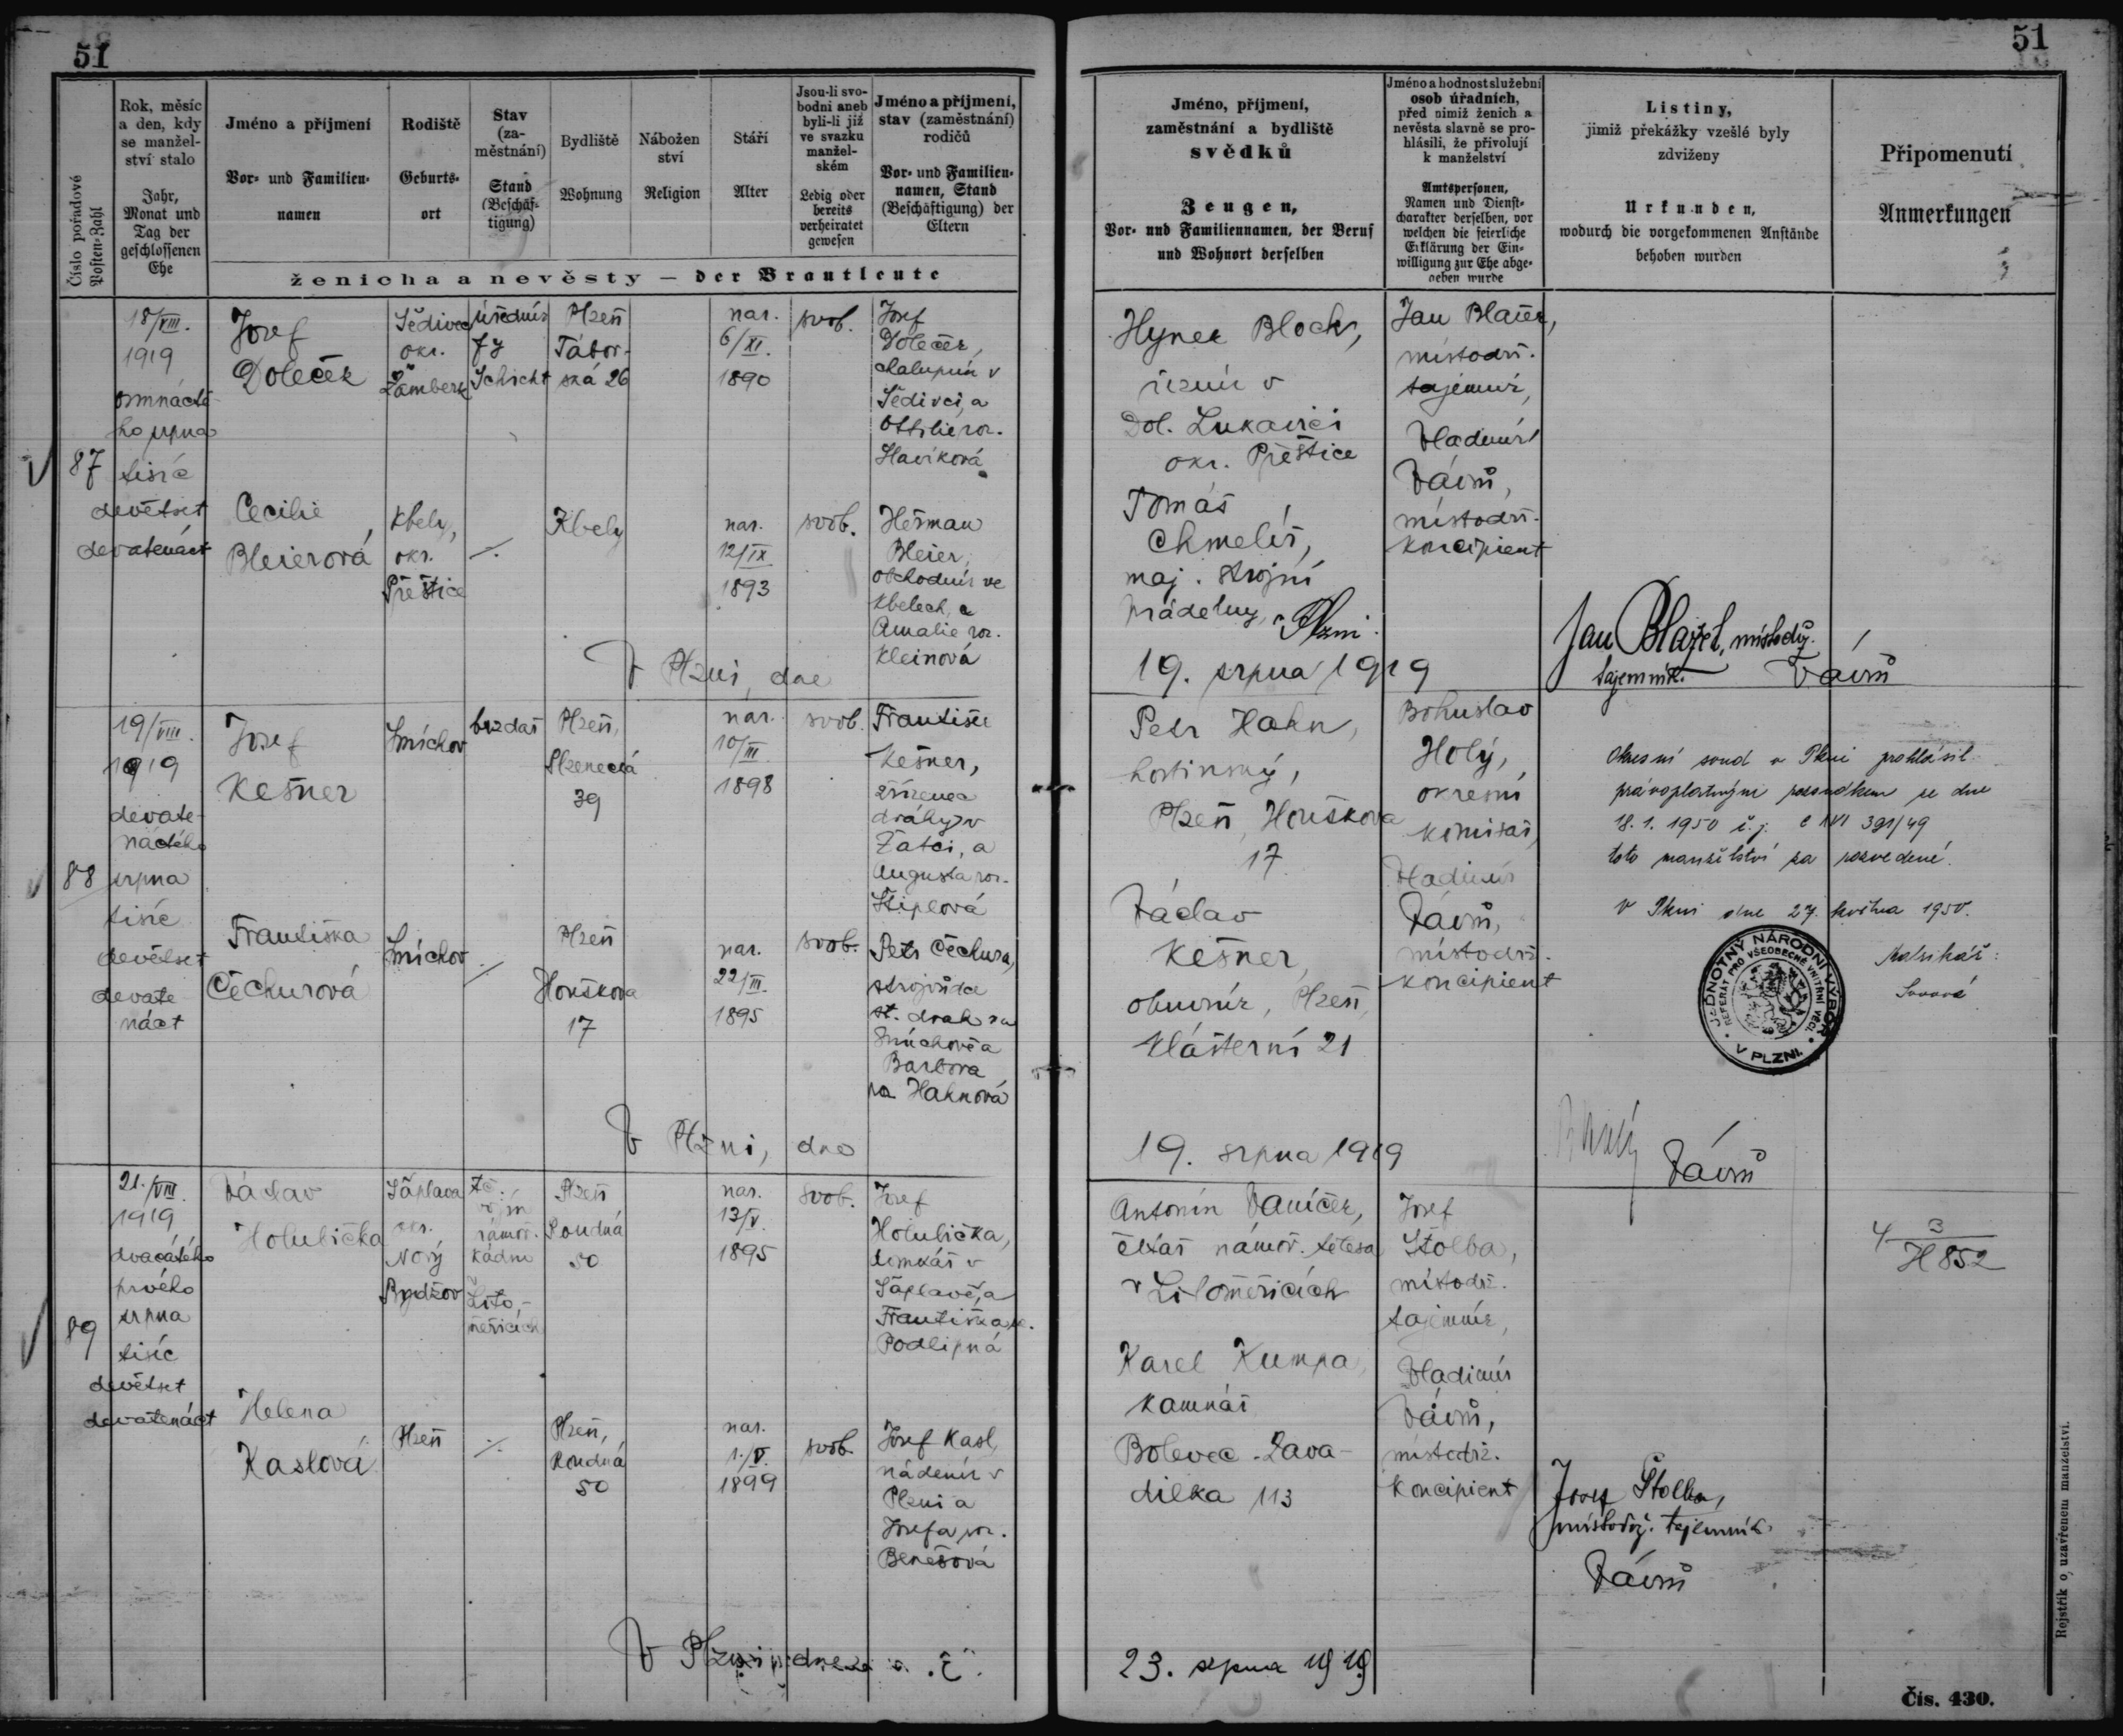 51
51
Číslo pořadové
Posten-Zahl
Rok, měsíc
a den, kdy
se manžel-
ství stalo
Jahr,
Monat und
Tag der
geschlossenen
Ehe
Jméno a příjmení
Vor- und Familien-
namen
Rodiště
Geburts-
ort
Stav
(za-
městnání)
Stand
(Beschäf-
tigung)
Bydliště
Wohnung
Nábožen
ství
Religion
Stáří
Alter
Jsou-li svo-
bodni aneb
byli-li již
ve svazku
manžel-
ském
Ledig oder
bereits
verheiratet
gewesen
Jméno a příjmení,
stav (zaměstnání)
rodičů
Vor- und Familien-
namen, Stand
(Beschäftigung) der
Eltern
ženicha a nevěsty – der Brautleute
Jméno, příjmení,
zaměstnání a bydliště
svědků
Zeugen,
Vor- und Familiennamen, der Beruf
und Wohnort derselben
Jméno a hodnost služební
osob úřadních,
před nimiž ženich a
nevěsta slavně se pro-
hlásili, že přivolují
k manželství
Amtspersonen,
Namen und Dienst-
charakter derselben, vor
welchen die feierliche
Erklärung der Ein-
willigung zur Ehe abge-
geben wurde
Listiny,
jimiž překážky vzešlé byly
zdviženy
Urkunden,
wodurch die vorgekommenen Anstände
behoben wurden
Připomenutí
Anmerkungen
87
18/VIII.
1919
osmnácté-
ho srpna
tisíc
devětset
devatenáct
Josef
Doleček
Šedivec
okr.
Žamberk
úředník
fy
Schicht
Plzeň
Tábor-
ská 26
nar.
6/XI.
1890
svob.
Josef
Doleček,
chalupník v
Šedivci, a
Ottilie roz.
Havíková
Cecilie
Bleierová
Kbely,
okr.
Přeštice
./.
Kbely
nar.
12/IX
1893
svob.
Heřman
Bleier,
obchodník ve
Kbelech, a
Amalie roz.
Kleinová
Hynek Bloch,
řezník v
Dol. Lukavici
okr. Přeštice
Tomáš
Chmelíř,
maj. strojní
prádelny, v Plzni.
Jan Blažek,
místodrž.
tajemník,
Vladimír
Vávrů,
místodrž.
koncipient
V Plzni, dne
19. srpna 1919
Jan Blažek, místodrž.
tajemník.
Vávrů
88
19/VIII.
1919
devate-
náctého
srpna
tisíc
devětset
devate
náct
Josef
Kešner
Smíchov
brzdař
Plzeň,
Plzenecká
39
nar.
10/III.
1898
svob.
František
Kešner,
zřízenec
dráhy v
Žatci, a
Augusta roz.
Štiplová
Františka
Čechurová
Smíchov
./.
Plzeň
Houškova
17
nar.
22/III.
1895
svob.
Petr Čechura,
strojvůdce
st. drah na
Smíchově a
Barbora
roz Hahnová
Petr Hahn,
hostinský,
Plzeň, Houškova
17
Václav
Kešner,
obuvník, Plzeň,
Klášterní 21
Bohuslav
Holý,
okresní
komisař,
Vladimír
Vávrů,
místodrž.
koncipient
Okresní soud v Plzni prohlásil
právoplatným rozsudkem ze dne
18. 1. 1950 č. j. C XVI 391/49
toto manželství za rozvedené.
V Plzni dne 27. května 1950.
Matrikář:
JEDNOTNÝ NÁRODNÍ VÝBOR
V PLZNI.
REFERÁT PRO VŠEOBECNÉ VNITŘNÍ VĚCI.
V Plzni, dne
19. srpna 1919
Vávrů
89
21./VIII.
1919
dvacátého
prvého
srpna
tisíc
devětset
devatenáct
Václav
Holubička
Šáplava
okr.
Nový
Bydžov
námoř.
kádru
v
Lito-
měřicích
Plzeň
Roudná
50
nar.
13/V.
1895
svob.
Josef
Holubička,
domkář v
Šáplavě, a
Františka roz.
Podlipná
Helena
Kaslová
Plzeň
./.
Plzeň,
Roudná
50
nar.
1./V.
1899
svob.
Josef Kasl,
nádeník v
Plzni a
Josefa roz.
Benešová
Antonín Vaníček,
četař námoř. tělesa
v Litoměřicích
Karel Kumpa,
kamnář
Bolevec - Zava-
dilka 113
Josef
Štolba,
místodrž.
tajemník,
Vladimír
Vávrů,
místodrž.
koncipient
4 3
H 852
Josef Štolba,
místodrž. tajemník.
Vávrů
V Plzni dne
23. srpna 1919
Rejstřík o uzavřenem manželstvi.
Čís. 430.